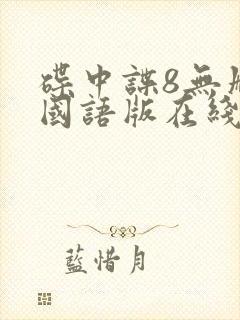 碟中諜8無
國語版在綫
藍惜月